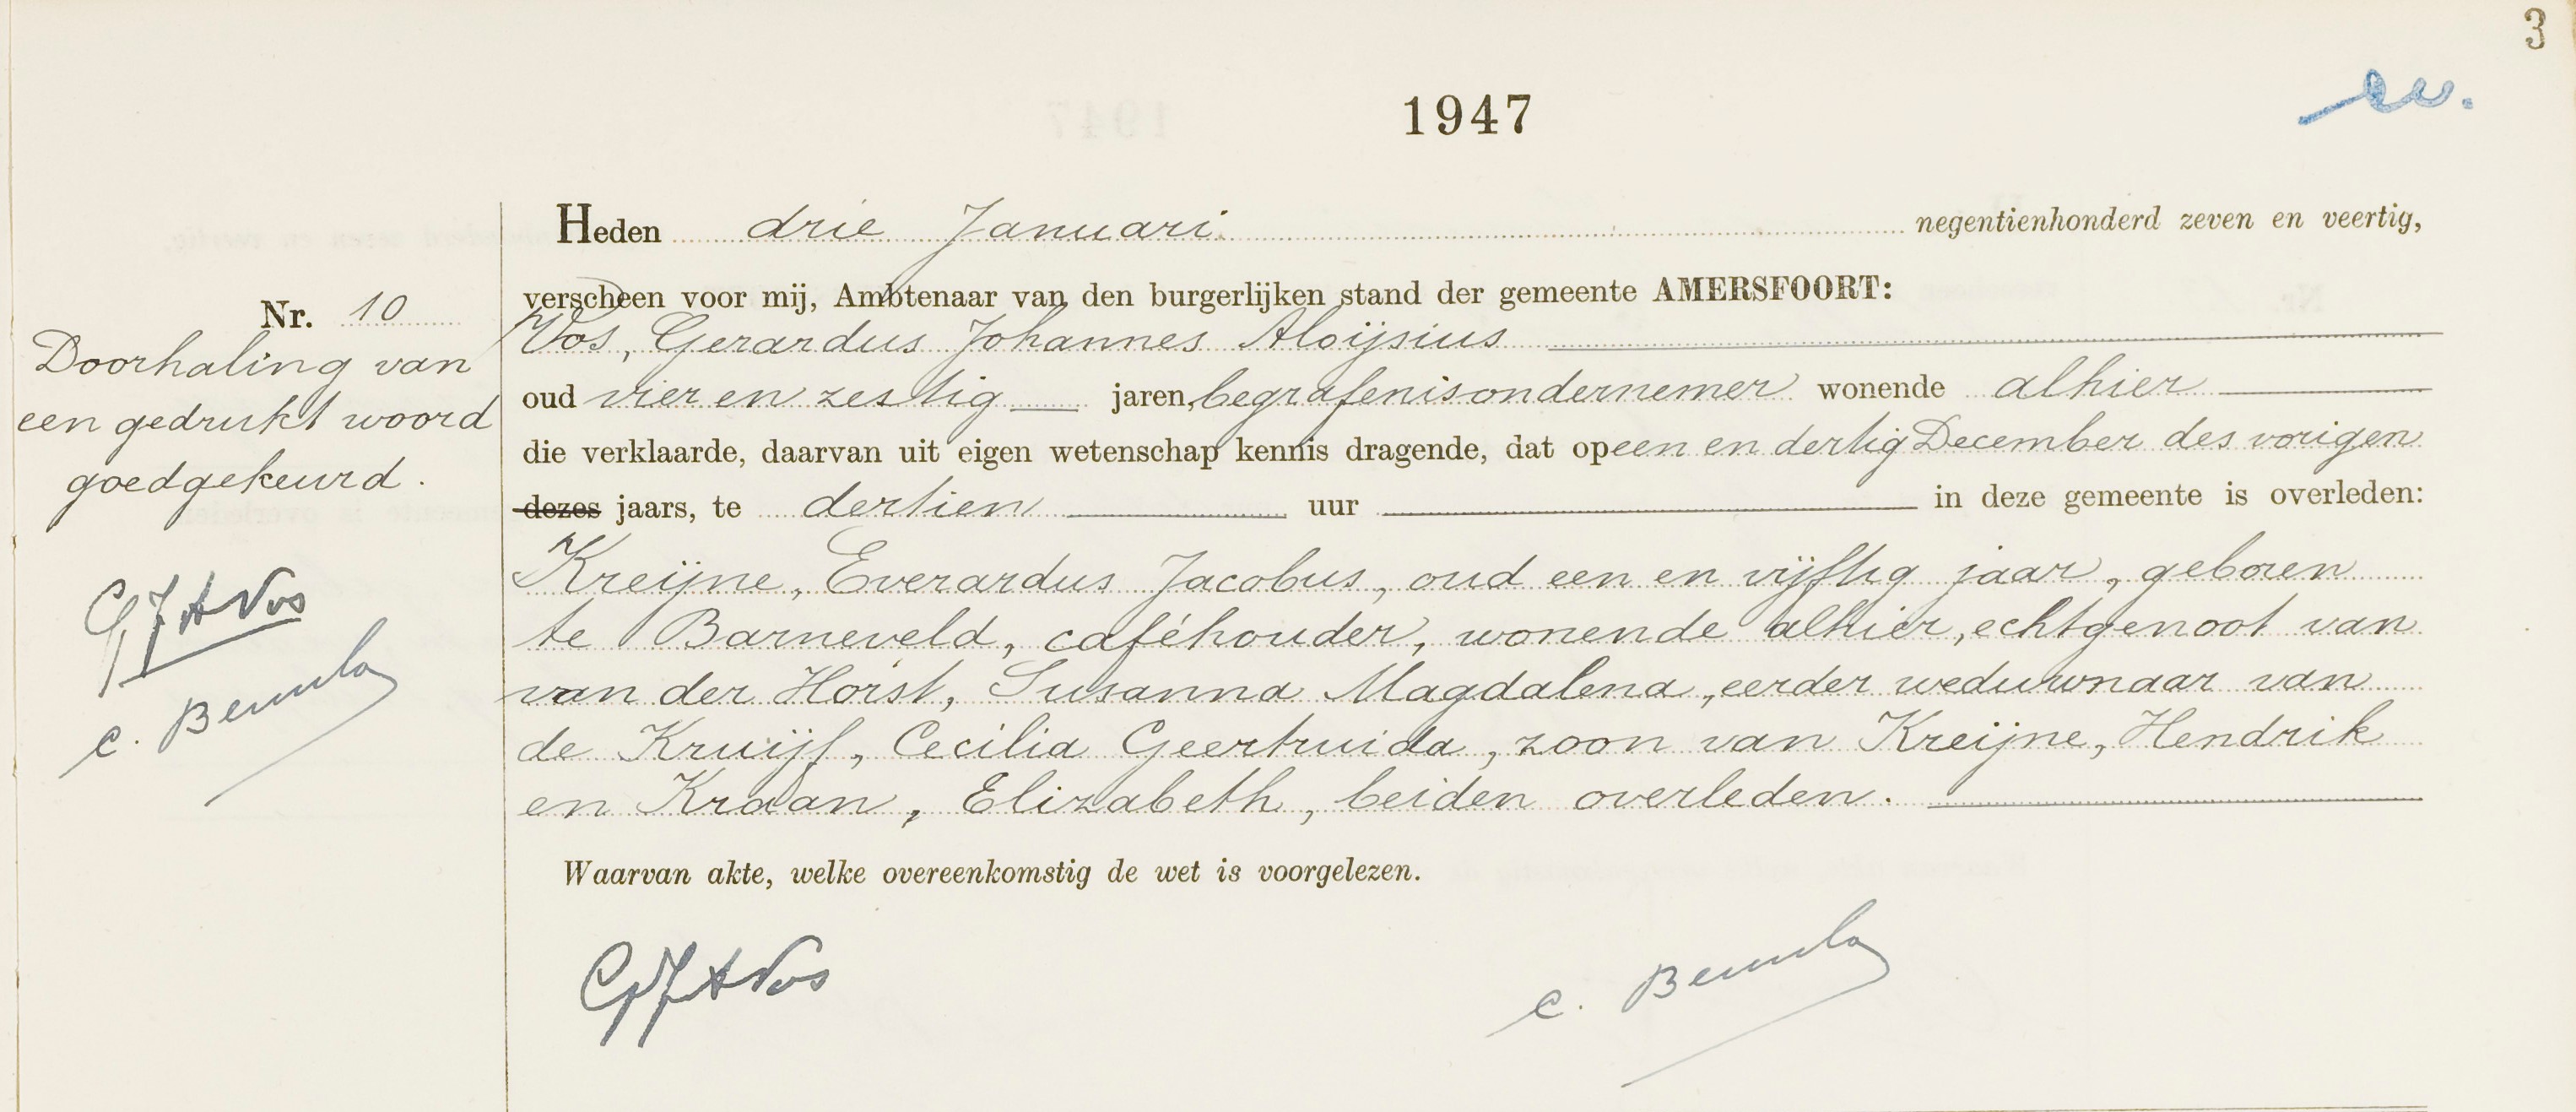 3
1947
Heden drie Januari negentienhonderd zeven en veertig,
verscheen voor mij, Ambtenaar van den burgerlijken stand der gemeente AMERSFOORT:
Vos, Gerardus Johannes Aloijsius
oud vier en zestig jaren, begrafenisondernemer wonende alhier
die verklaarde, daarvan uit eigen wetenschap kennis dragende, dat op een en dertig December des vorigen
dezes jaars, te dertien uur in deze gemeente is overleden:
Kreijne, Everardus Jacobus, oud een en vijftig jaar, geboren
te Barneveld, caféhouder, wonende alhier, echtgenoot van
van der Horst, Susanna Magdalena, eerder weduwnaar van
de Kruijf, Cecilia Geertruida, zoon van Kreijne, Hendrik
en Kraan, Elizabeth, beiden overleden.
Waarvan akte, welke overeenkomstig de wet is voorgelezen.
GJAVos
C.
Nr. 10
Doorhaling van
een gedrukt woord
goedgekeurd.
GJAVos
C.